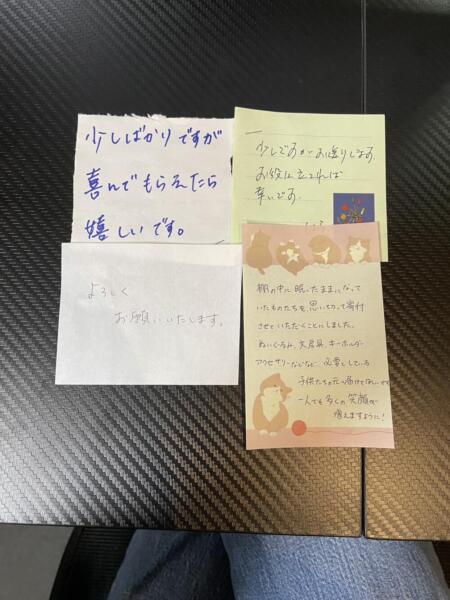 少しばかりですが
喜んでもらえたら
嬉しいです。
少しですがお送りします。
お役に立てれば
幸いです。
よろしく
お願いいたします。
棚の中に眠ったままになって
いたものたちを思い切って寄付
させていただくことにしました。
ぬいぐるみ、文房具、キーホルダー
アクセサリーなどなど 必要としている
子供たちの元へ届けてほしいです
一人でも多くの笑顔が
増えますように!